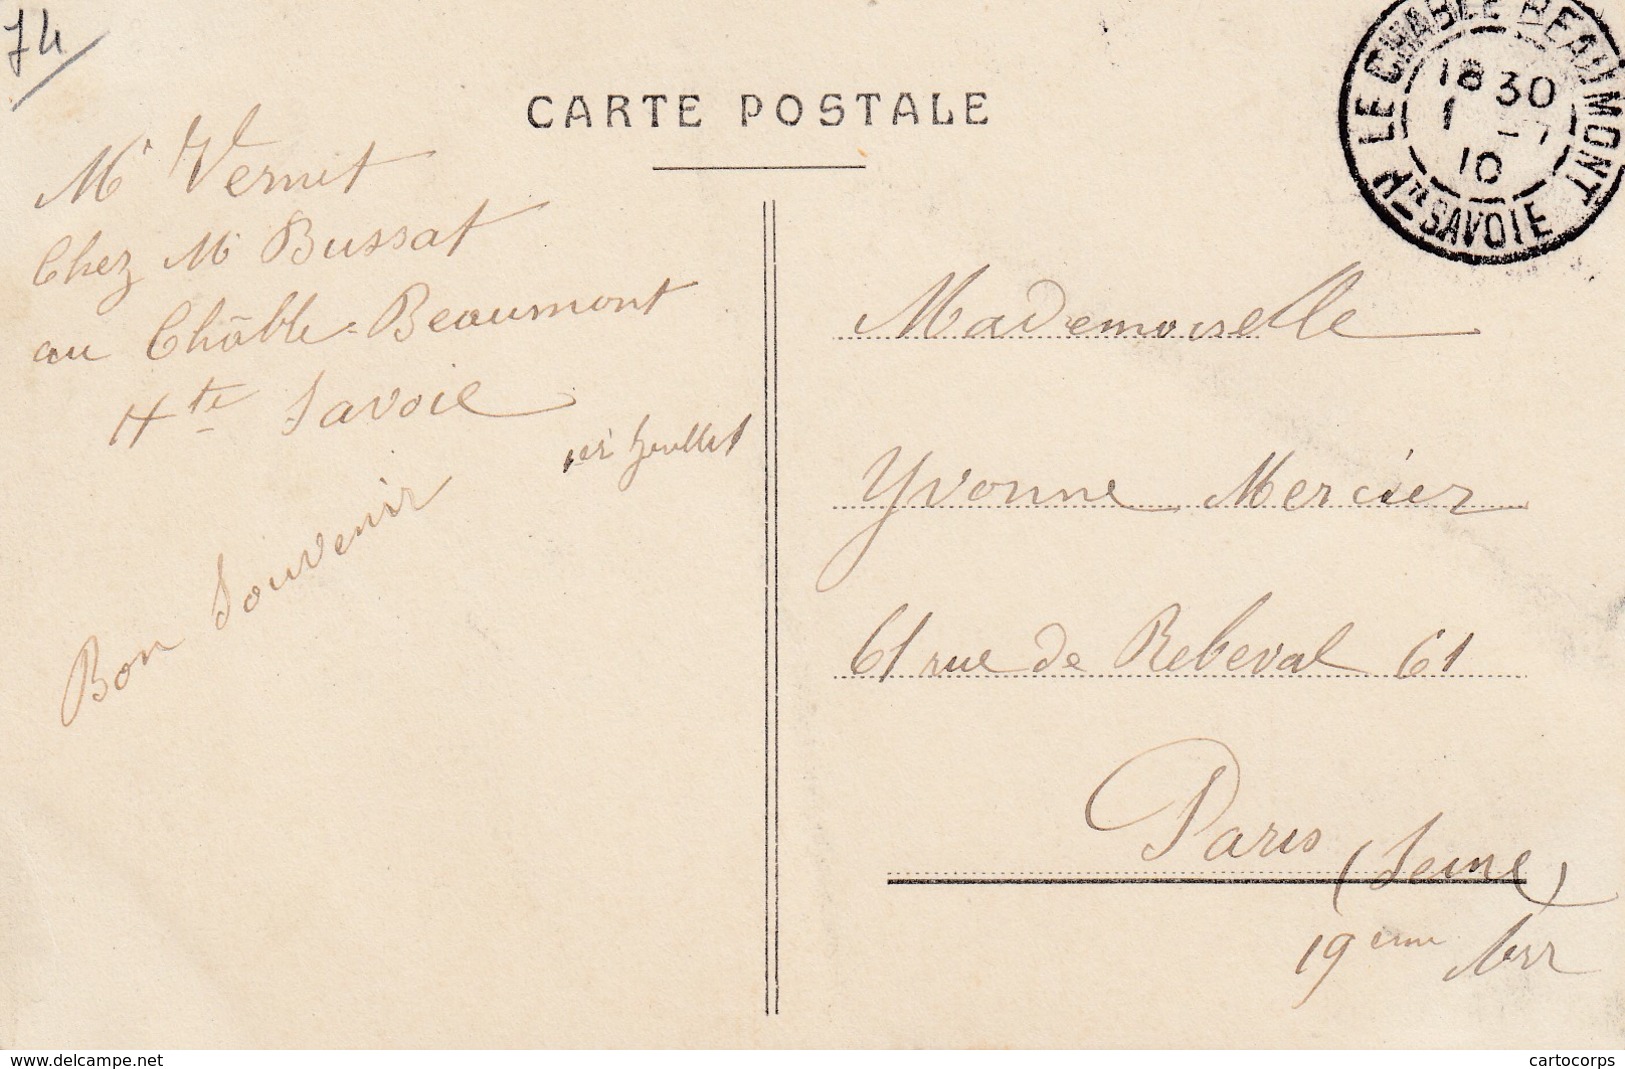 74
CARTE POSTALE
LE CHABLE BEAUMONT
18 30
1 -7
10
Hte SAVOIE
Mr Vernet
Chez Mr Bussat
au Châble-Beaumont
Hte Savoie
1er Juillet
Bon Souvenir
Mademoiselle
Yvonne Mercier
61 rue de Rebeval 61
Paris (Seine)
19ème Arr
www.delcampe.net
cartocorps